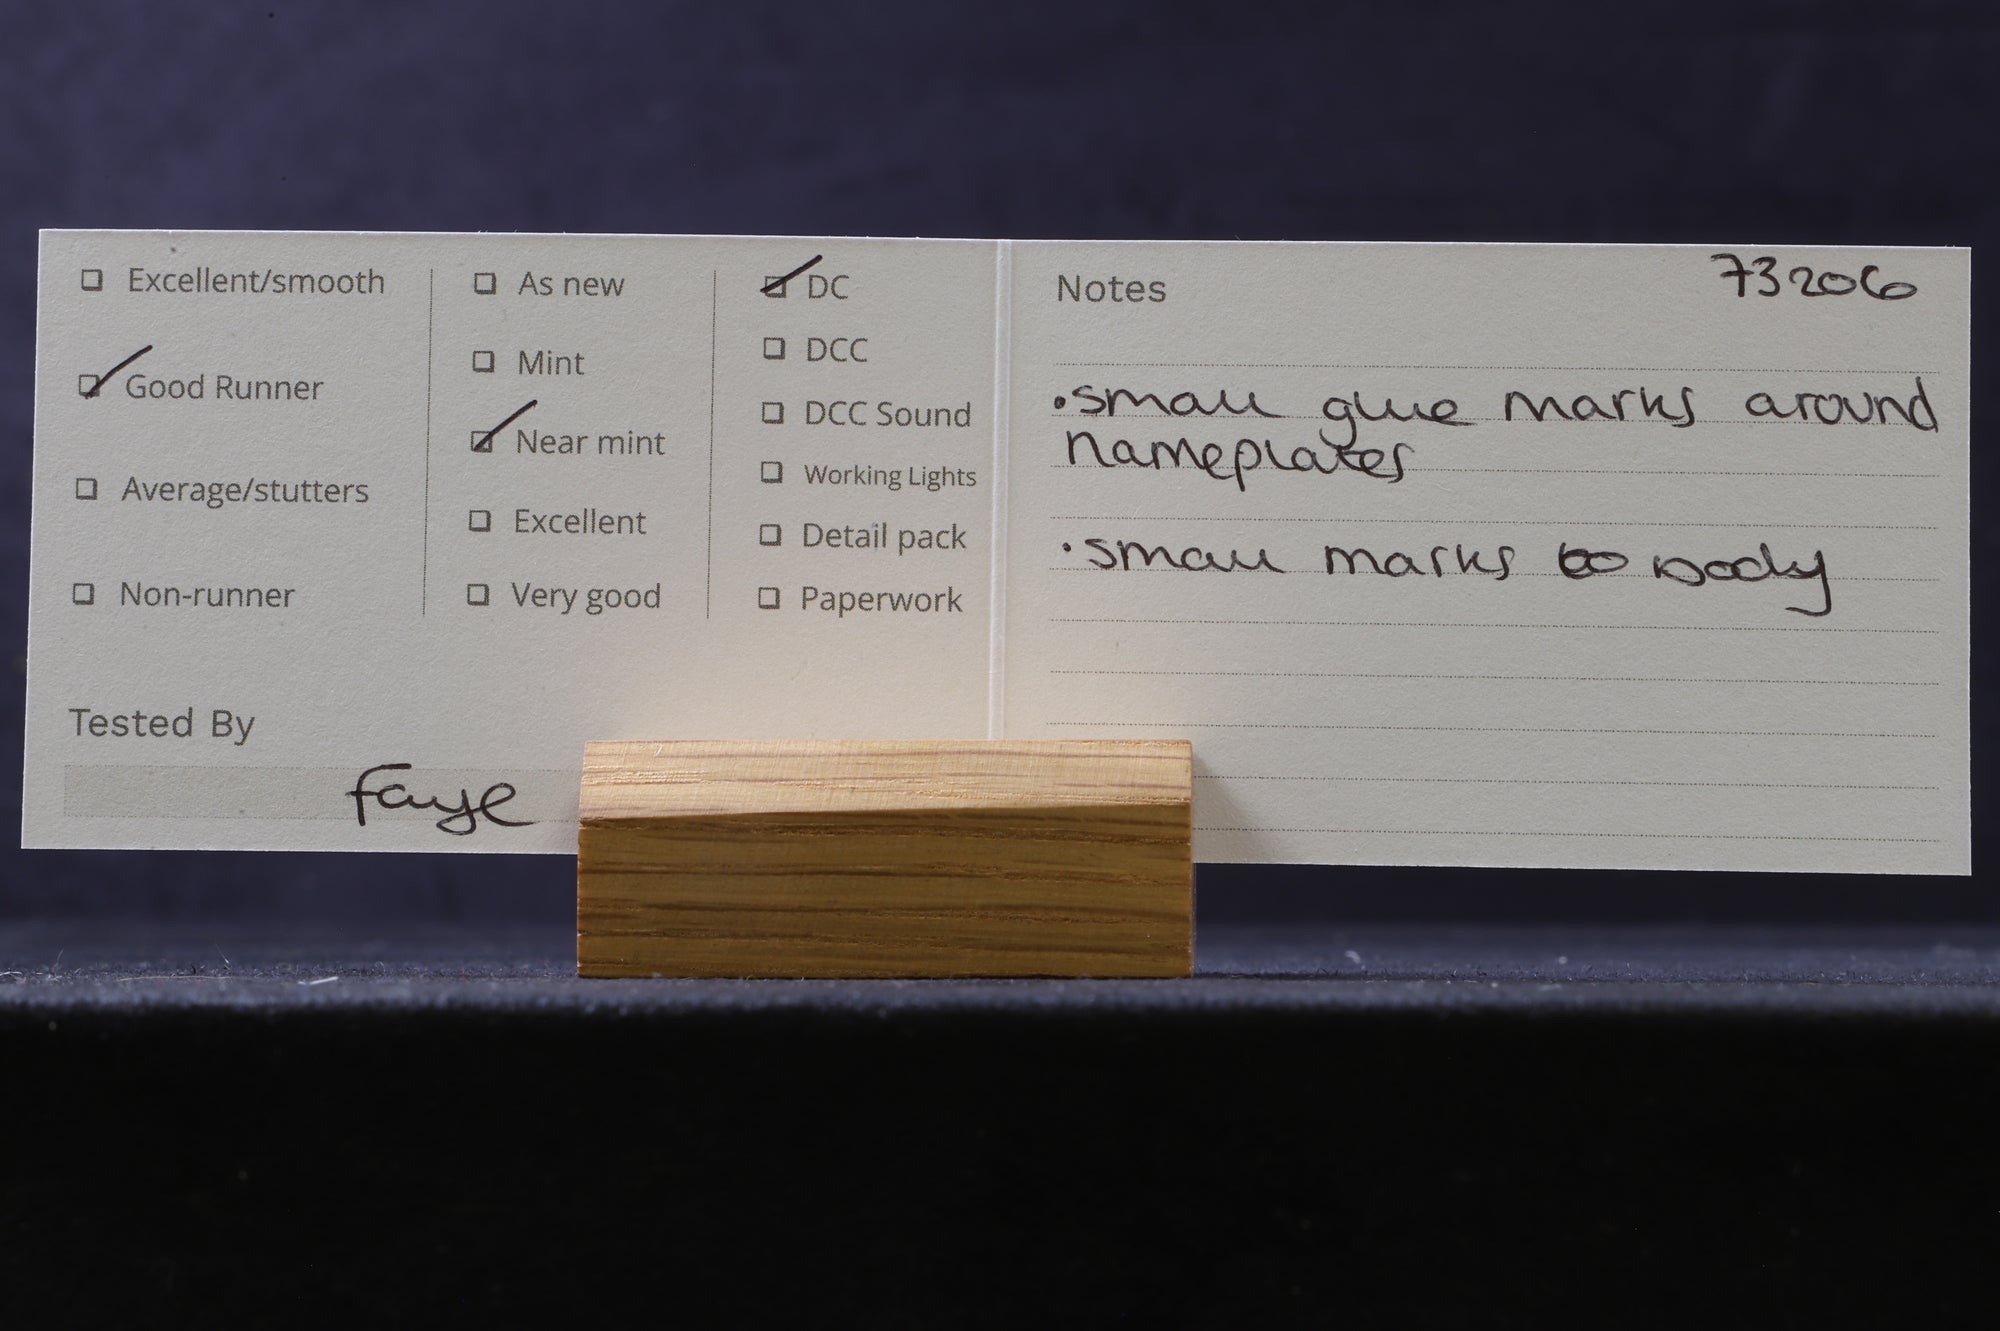 Excellent/smooth
Good Runner
Average/stutters
Non-runner
As new
Mint
Near mint
Excellent
Very good
DC
DCC
DCC Sound
Working Lights
Detail pack
Paperwork
Tested By
Faye
Notes
73206
•small glue marks around
nameplates
•small marks to body